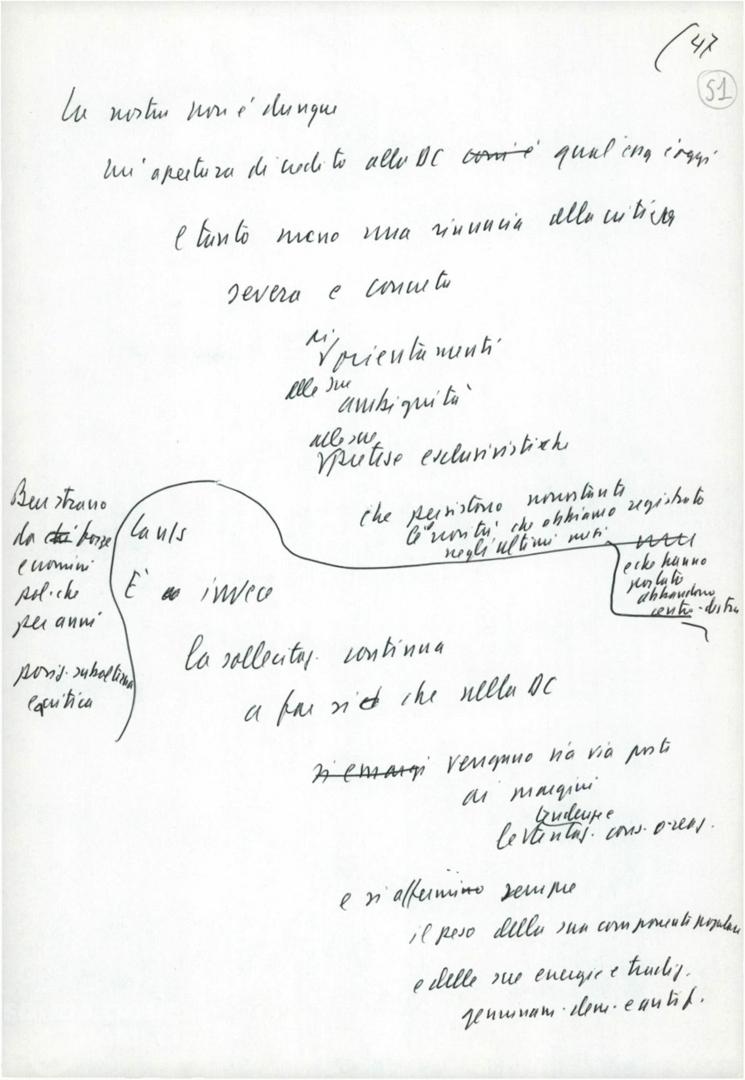 (47
51
La nostra non è dunque
un'apertura di credito alla DC com'è qual essa è oggi
e tanto meno una rinuncia alla critica
severa e concreta
ai orientamenti
alle sue ambiguità
alle sue pretese esclusivistiche
che persistono nonostante
le novità che abbiamo registrato
negli ultimi mesi
e che hanno
portato
abbandono
centro-destra
Ben strano
da forze
e uomini
pol. che
per anni
posiz. subalterna
e critica
È invece
la sollecitaz. continua
a far sì che nella DC
si emargi vengano via via posti
ai margini
tendenze
le tentaz. cons. o reaz.
e si affermino sempre
il peso della sua componente popolare
e delle sue energie e tradiz.
genuinam. dem. e antif.